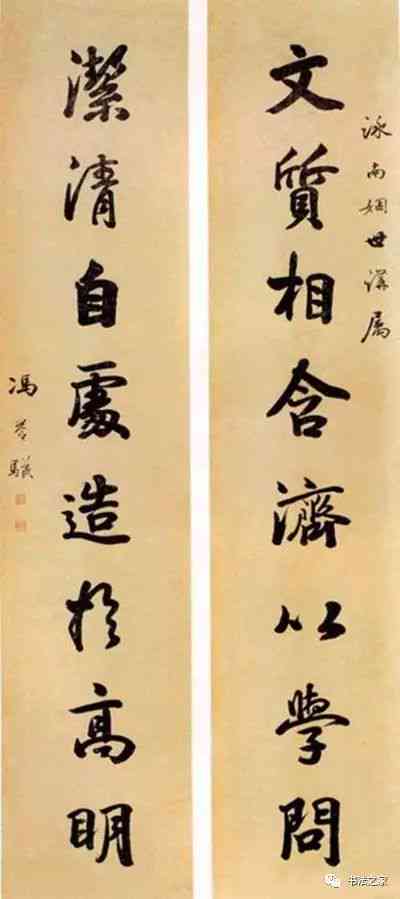 泳南姻世講属
文質相含濟以學問
潔清自處造於高明
馮譽驥
书法之家